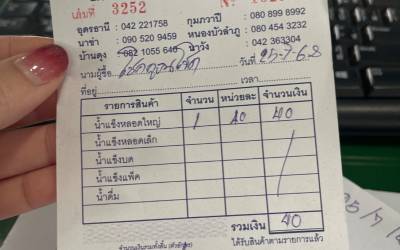 เล่มที่ 3252
อุดรธานี : 042 221758 กุมภวาปี : 080 899 8992
นาข่า : 090 520 9459 หนองบัวลำภู : 080 454 3232
บ้านดุง : 082 1055 640 นาวัง : 042 363304
นามผู้ซื้อ วันที่ 25-7-68
ที่อยู่ เวลา
รายการสินค้า จำนวน หน่วยละ จำนวนเงิน
น้ำแข็งหลอดใหญ่ 1 40 40
น้ำแข็งหลอดเล็ก
น้ำแข็งบด
น้ำแข็งแพ็ค
น้ำดื่ม
รวมเงิน 40
ได้รับสินค้าตามรายการแล้ว